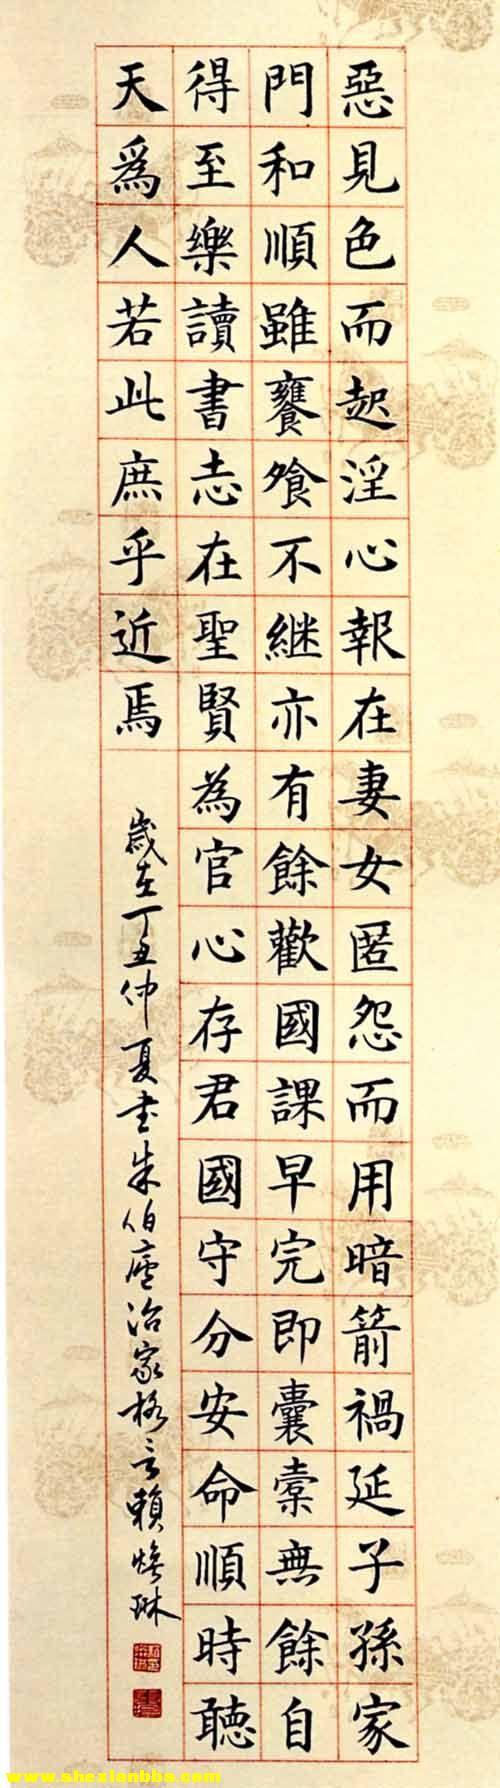 惡見色而起淫心報在妻女匿怨而用暗箭禍延子孫家
門和順雖饔飧不繼亦有餘歡國課早完即囊橐無餘自
得至樂讀書志在聖賢為官心存君國守分安命順時聴
天爲人若此庶乎近焉
歲在丁丑仲夏書朱伯廬治家格言賴煥琳
www.shexianbbs.com